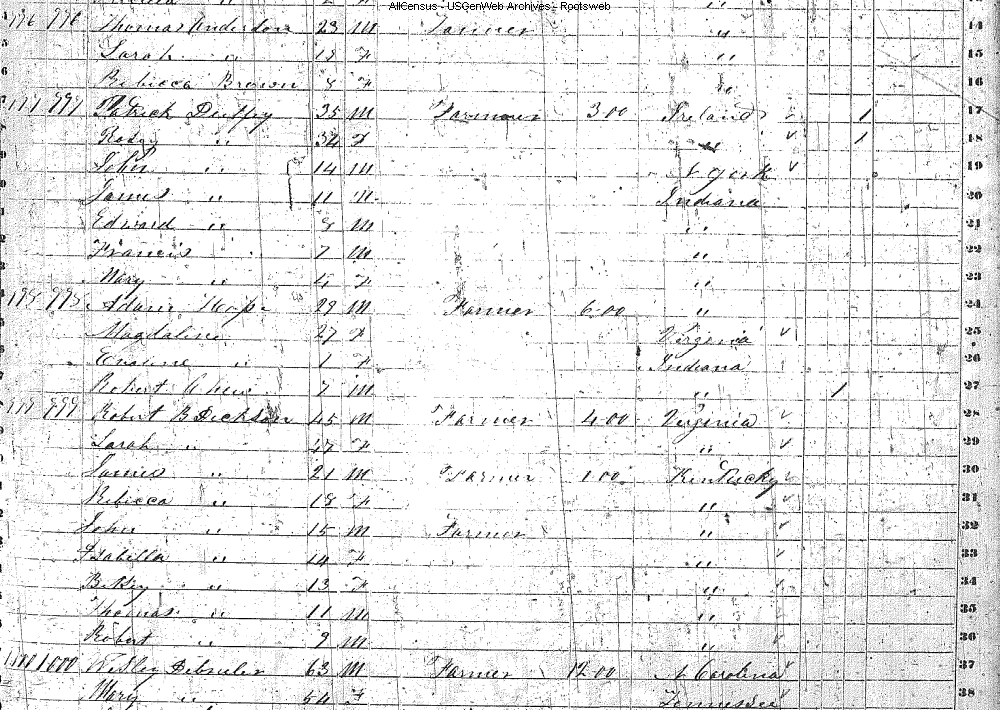 AllCensus - USGenWeb Archives - Rootsweb
996 Thomas Anderson 23 M Farmer " 14
Sarah " 18 F " 15
Rebecca Brown 8 F " 16
997 Patrick Duffey 35 M Farmer 300 Ireland 1 17
" 34 F " 1 18
John " 14 M N York 19
James " 11 M Indiana 20
Edward " 8 M " 21
Francis " 7 M " 22
Mary " F " 23
998 Adam 29 M Farmer 600 " 24
Magdaline 27 F Virginia 25
" 1 F Indiana 26
Robert 7 M " 1 27
999 Robert B Dickson 45 M Farmer 400 Virginia 28
Sarah " 47 F " 29
James " 21 M Farmer 100 Kentucky 30
Rebecca " 18 F " 31
John " 15 M Farmer " 32
Isabella " 14 F " 33
Betsy " 13 F " 34
Thomas " 11 M " 35
Robert " 9 M " 36
1000 Wesley 63 M Farmer 1200 N Carolina 37
Mary " 54 F Tennessee 38